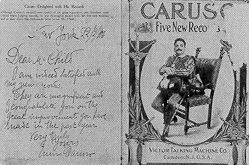 Caruso Delighted with His Records
New York
Dear Mr Child
I am indeed satisfied with
my new
They are magnificent and
Congratulate you on the
great improvement you have
made in the past year
Very Yours
Enrico Caruso
CARUSO
Five New Reco
VICTOR TALKING MACHINE CO.
Camden, N.J., U.S.A.